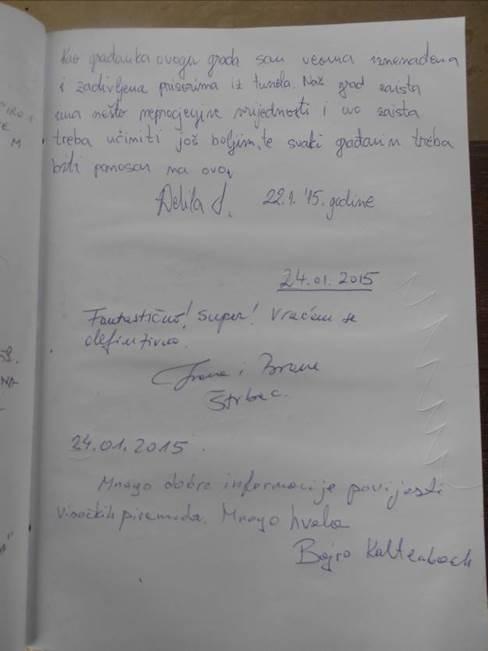 Kao građanka ovoga grada sam veoma iznenađena
i zadivljena prizorima iz tunela. Naš grad zaista
ima nešto neprocjenjive vrijednosti i ovo zaista
treba učiniti još boljim, te svaki građanin treba
biti ponosan na ovo.
Delila J. 22.1.'15. godine
24.01.2015
Fantastično! Super! Vraćam se
definitivno.
i Brane
Štrbac.
24.01.2015.
Mnogo dobro informacije povijesti
Visočkih piramida. Mnogo hvala
Bojro Kaltenbach